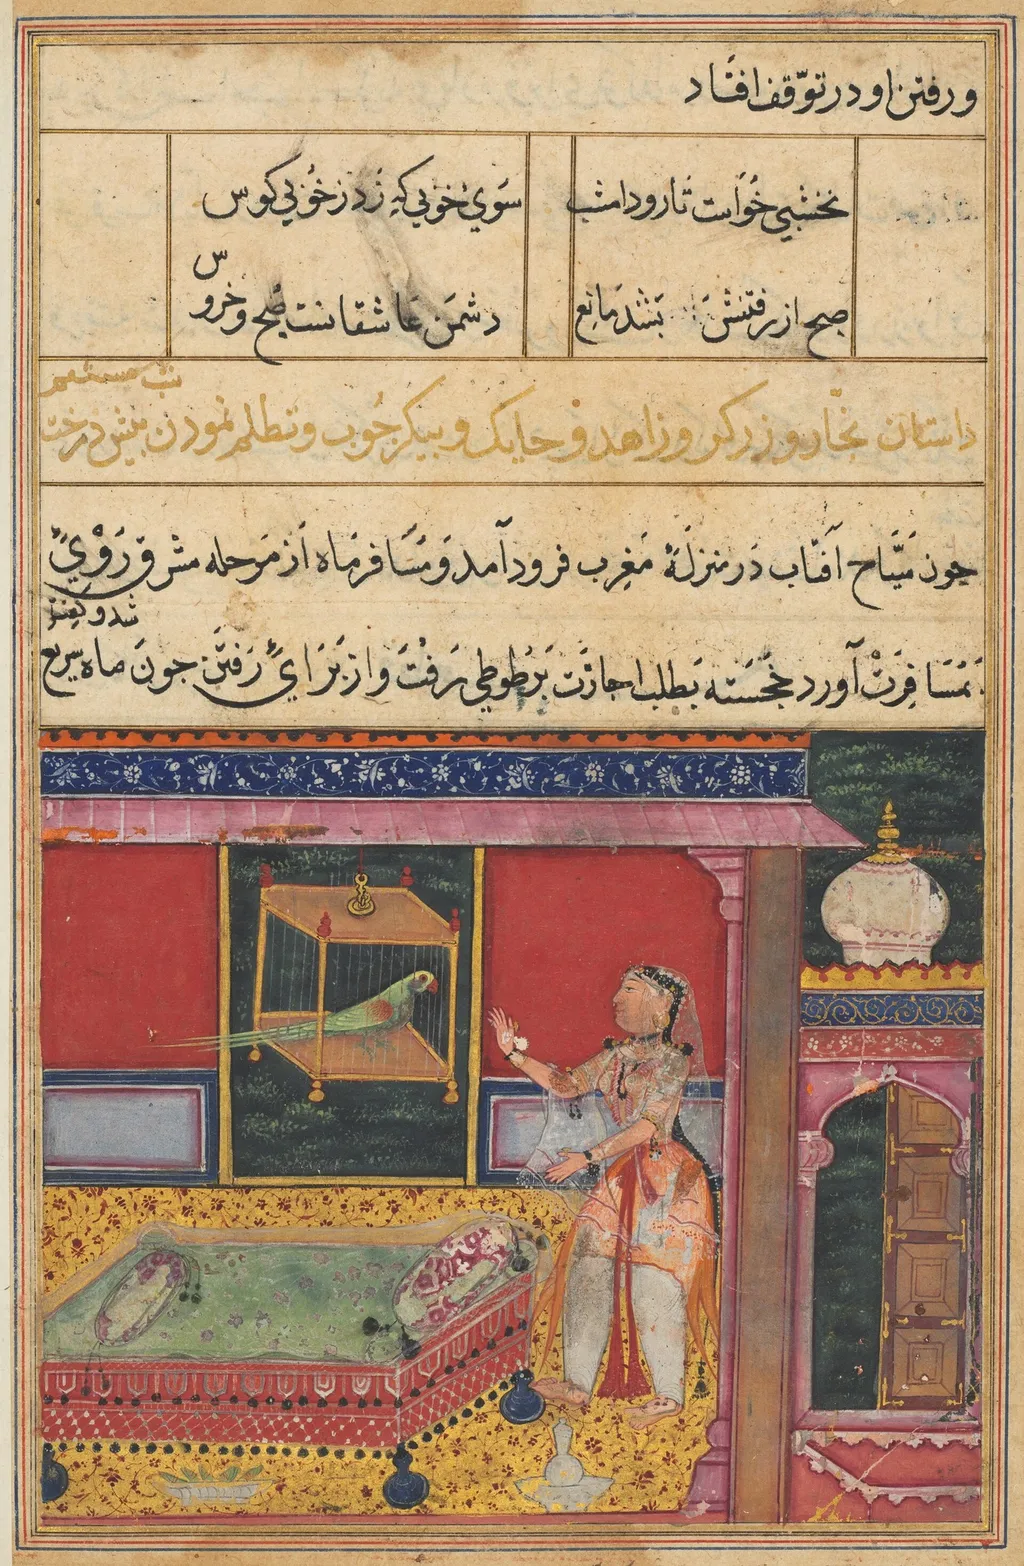 و رفتن او در توقف افتاد
نخشبی خواست تا رود امشب سوی خوبی که زد ز خوبی کوس
صبح از رفتنش بشد مانع دشمن عاشقانست صبح و خروس
داستان نجار و زرکر و زاهد و حایک و پیکر جوب و تظلم نمودن پیش درخت
شب
جون سیاح آفتاب در منزلهٔ مغرب فرود آمد و مسافر ماه از مرحله مشرق روی
بمسافرت آورد خجسته بطلب اجازت بر طوطی رفت و از برای رفتن جون ماه سریع
شد و گفت